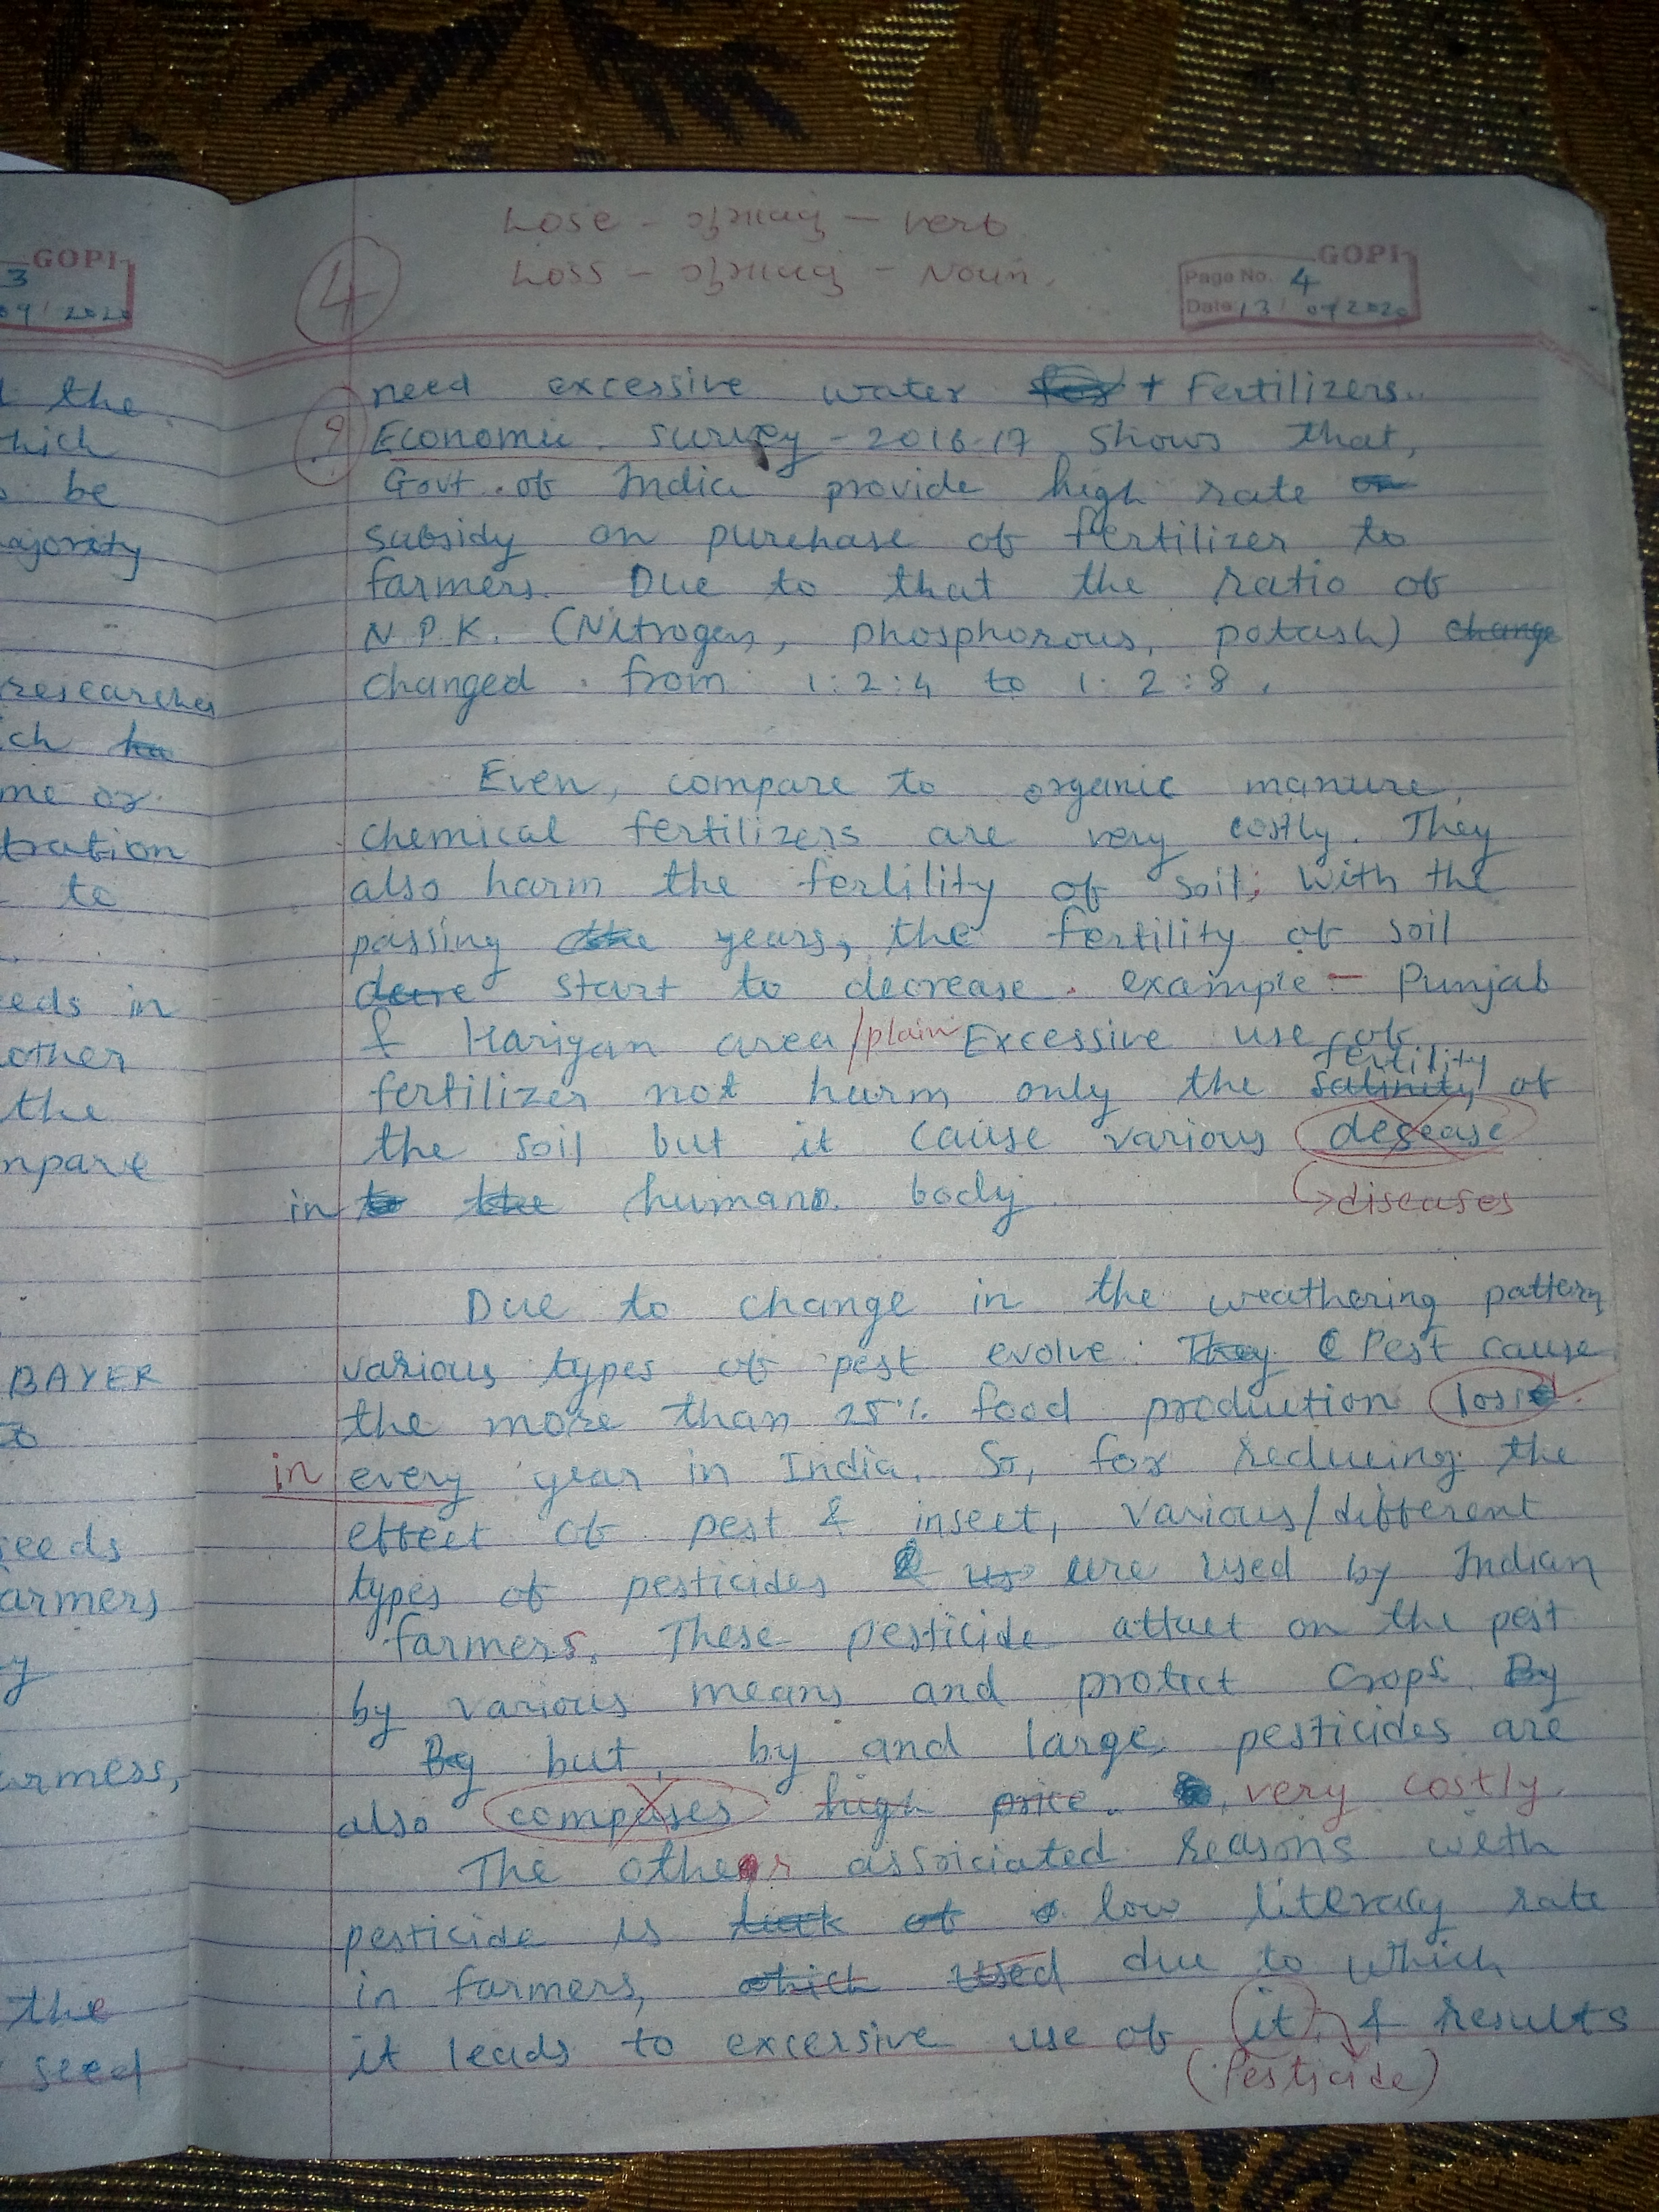 GOPI
3
09/2020
t the
hich
be
majority
researches
ch
me or
tration
to
eeds in
other
the
mpare
BAYER
to
seeds
armers
y
armers,
the
seed
Lose - verb
Loss - Noun.
4
GOPI
Page No. 4
Date 13/09/2020
need excessive water + Fertilizers.
? Economic survey - 2016-17 shows that,
Govt. of India provide high rate
subsidy on purchase of fertilizer to
farmers. Due to that the ratio of
N.P.K. (Nitrogen, phosphorous, potash) change
changed from 1:2:4 to 1:2:8.
Even, compare to organic manure,
chemical fertilizers are very costly. They
also harm the fertility of soil; With the
passing the years, the fertility of soil
decre start to decrease. example - Punjab
& Hariyan area/plain Excessive use of
fertilizer not harm only the salinity fertility of
the soil but it cause various desease
→diseases
in to the human body
Due to change in the weathering pattern,
various types of pest evolve. They Pest cause
the more than 25% food production loss
in every year in India. So, for reducing the
effect of pest & insect, various/different
types of pesticides & us are used by Indian
farmers. These pesticide attact on the pest
by various means and protect crops. By
By but, by and large, pesticides are
also compases high price. very costly.
The other assiciated reasons with
pesticide is lack of low literacy rate
in farmers, which used due to which
it leads to excessive use of it. & results
(Pesticide)